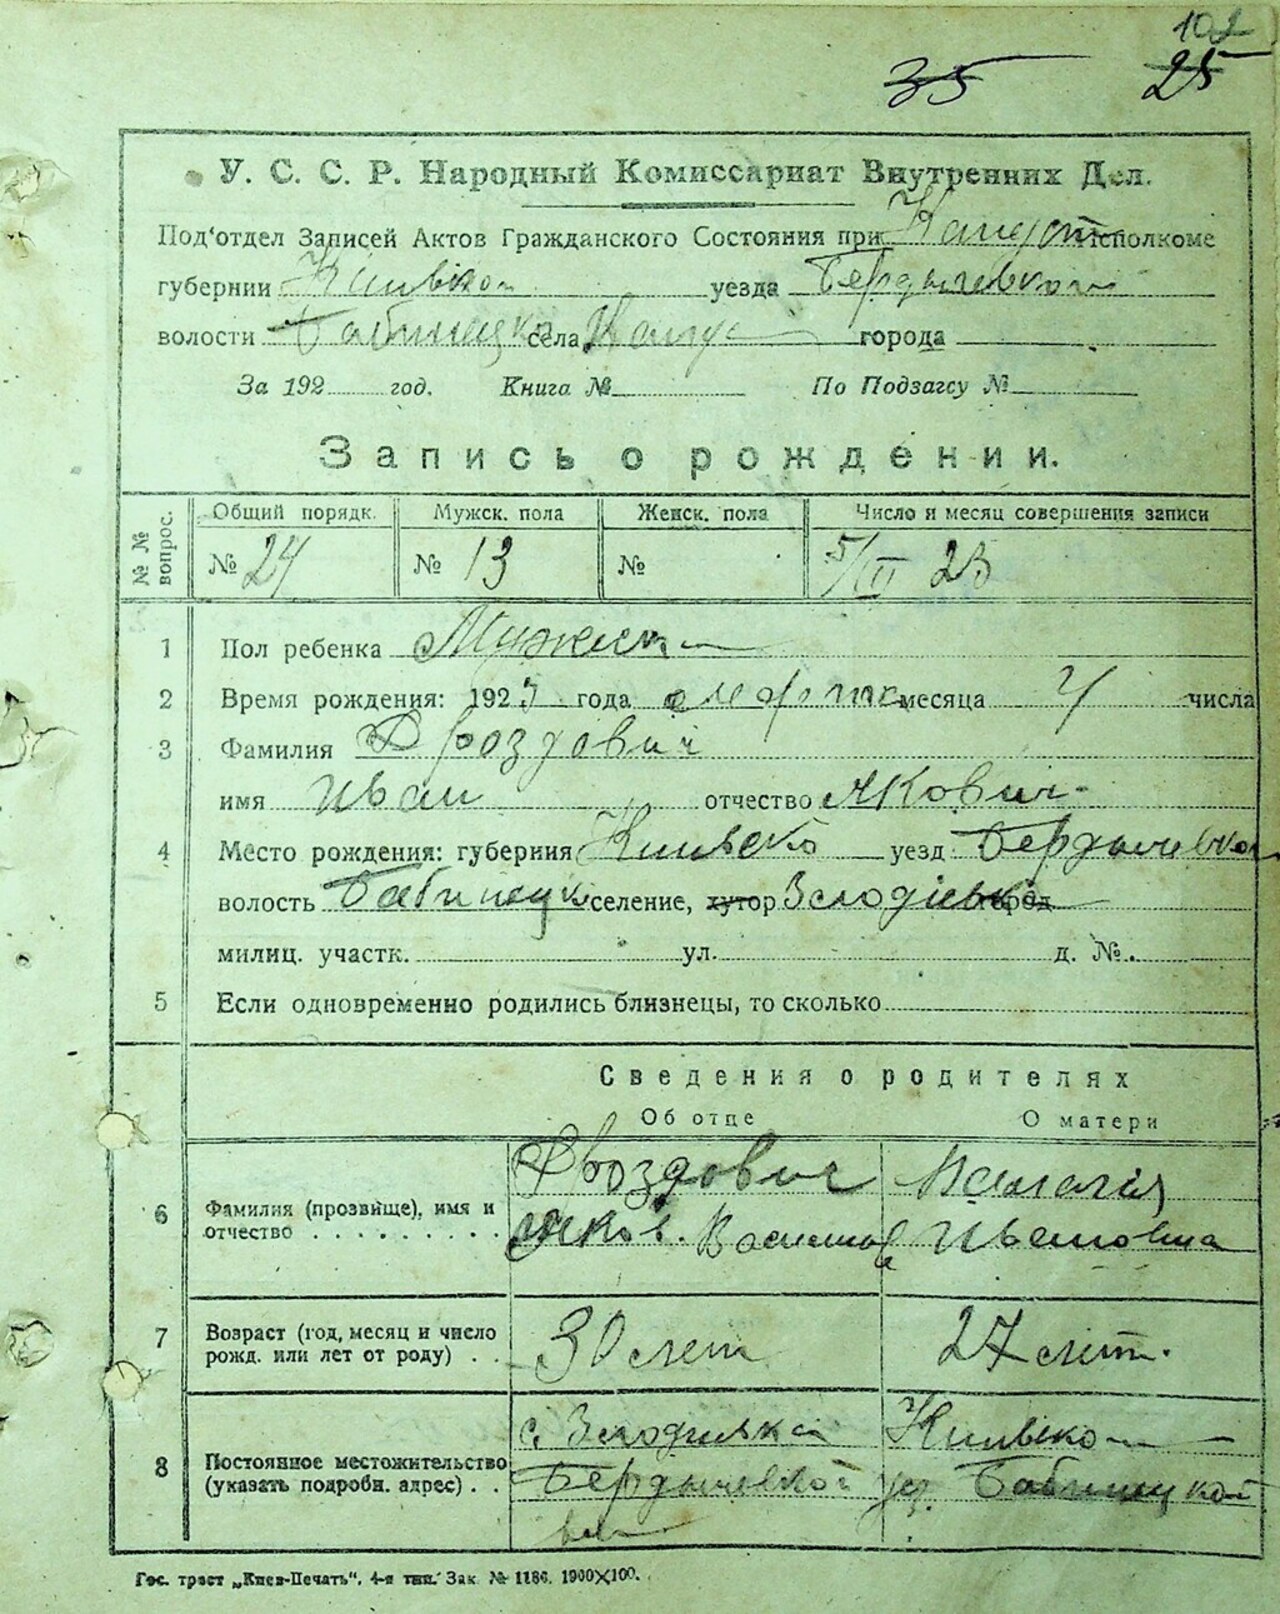 102
35 25
У. С. С. Р. Народный Комиссариат Внутренних Дел.
Под'отдел Записей Актов Гражданского Состояния при Исполкоме
губернии Киивской уезда Бердычевской
волости Бабинецкой села города
За 192 год. Книга № По Подзагсу №
Запись о рождении.
№ № вопрос.
Общий порядк. Мужск. пола Женск. пола Число и месяц совершения записи
№ 24 № 13 № 5/III 23
1 Пол ребенка Мужеск
2 Время рождения: 1923 года марта месяца 4 числа
3 Фамилия Дроздович
имя Иван отчество Якович
4 Место рождения: губерния Киивско уезд Бердычевкой
волость Бабинецк селение, хутор Зелодіевка город
милиц. участк. ул. д. №.
5 Если одновременно родились близнецы, то сколько
Сведения о родителях
Об отце О матери
6 Фамилия (прозвище), имя и отчество . . . . . . . . . .
Дроздович
Яков.
Ивановна
7 Возраст (год, месяц и число рожд. или лет от роду) . .
30 лет 27 лет.
8 Постоянное местожительство (указать подробн. адрес) . .
с. Киивской
Бердычевкой уез. Бабинецкой
вол
Гос. трест „Киев-Печать". 4-я тип. Зак. № 1186. 1900×100.